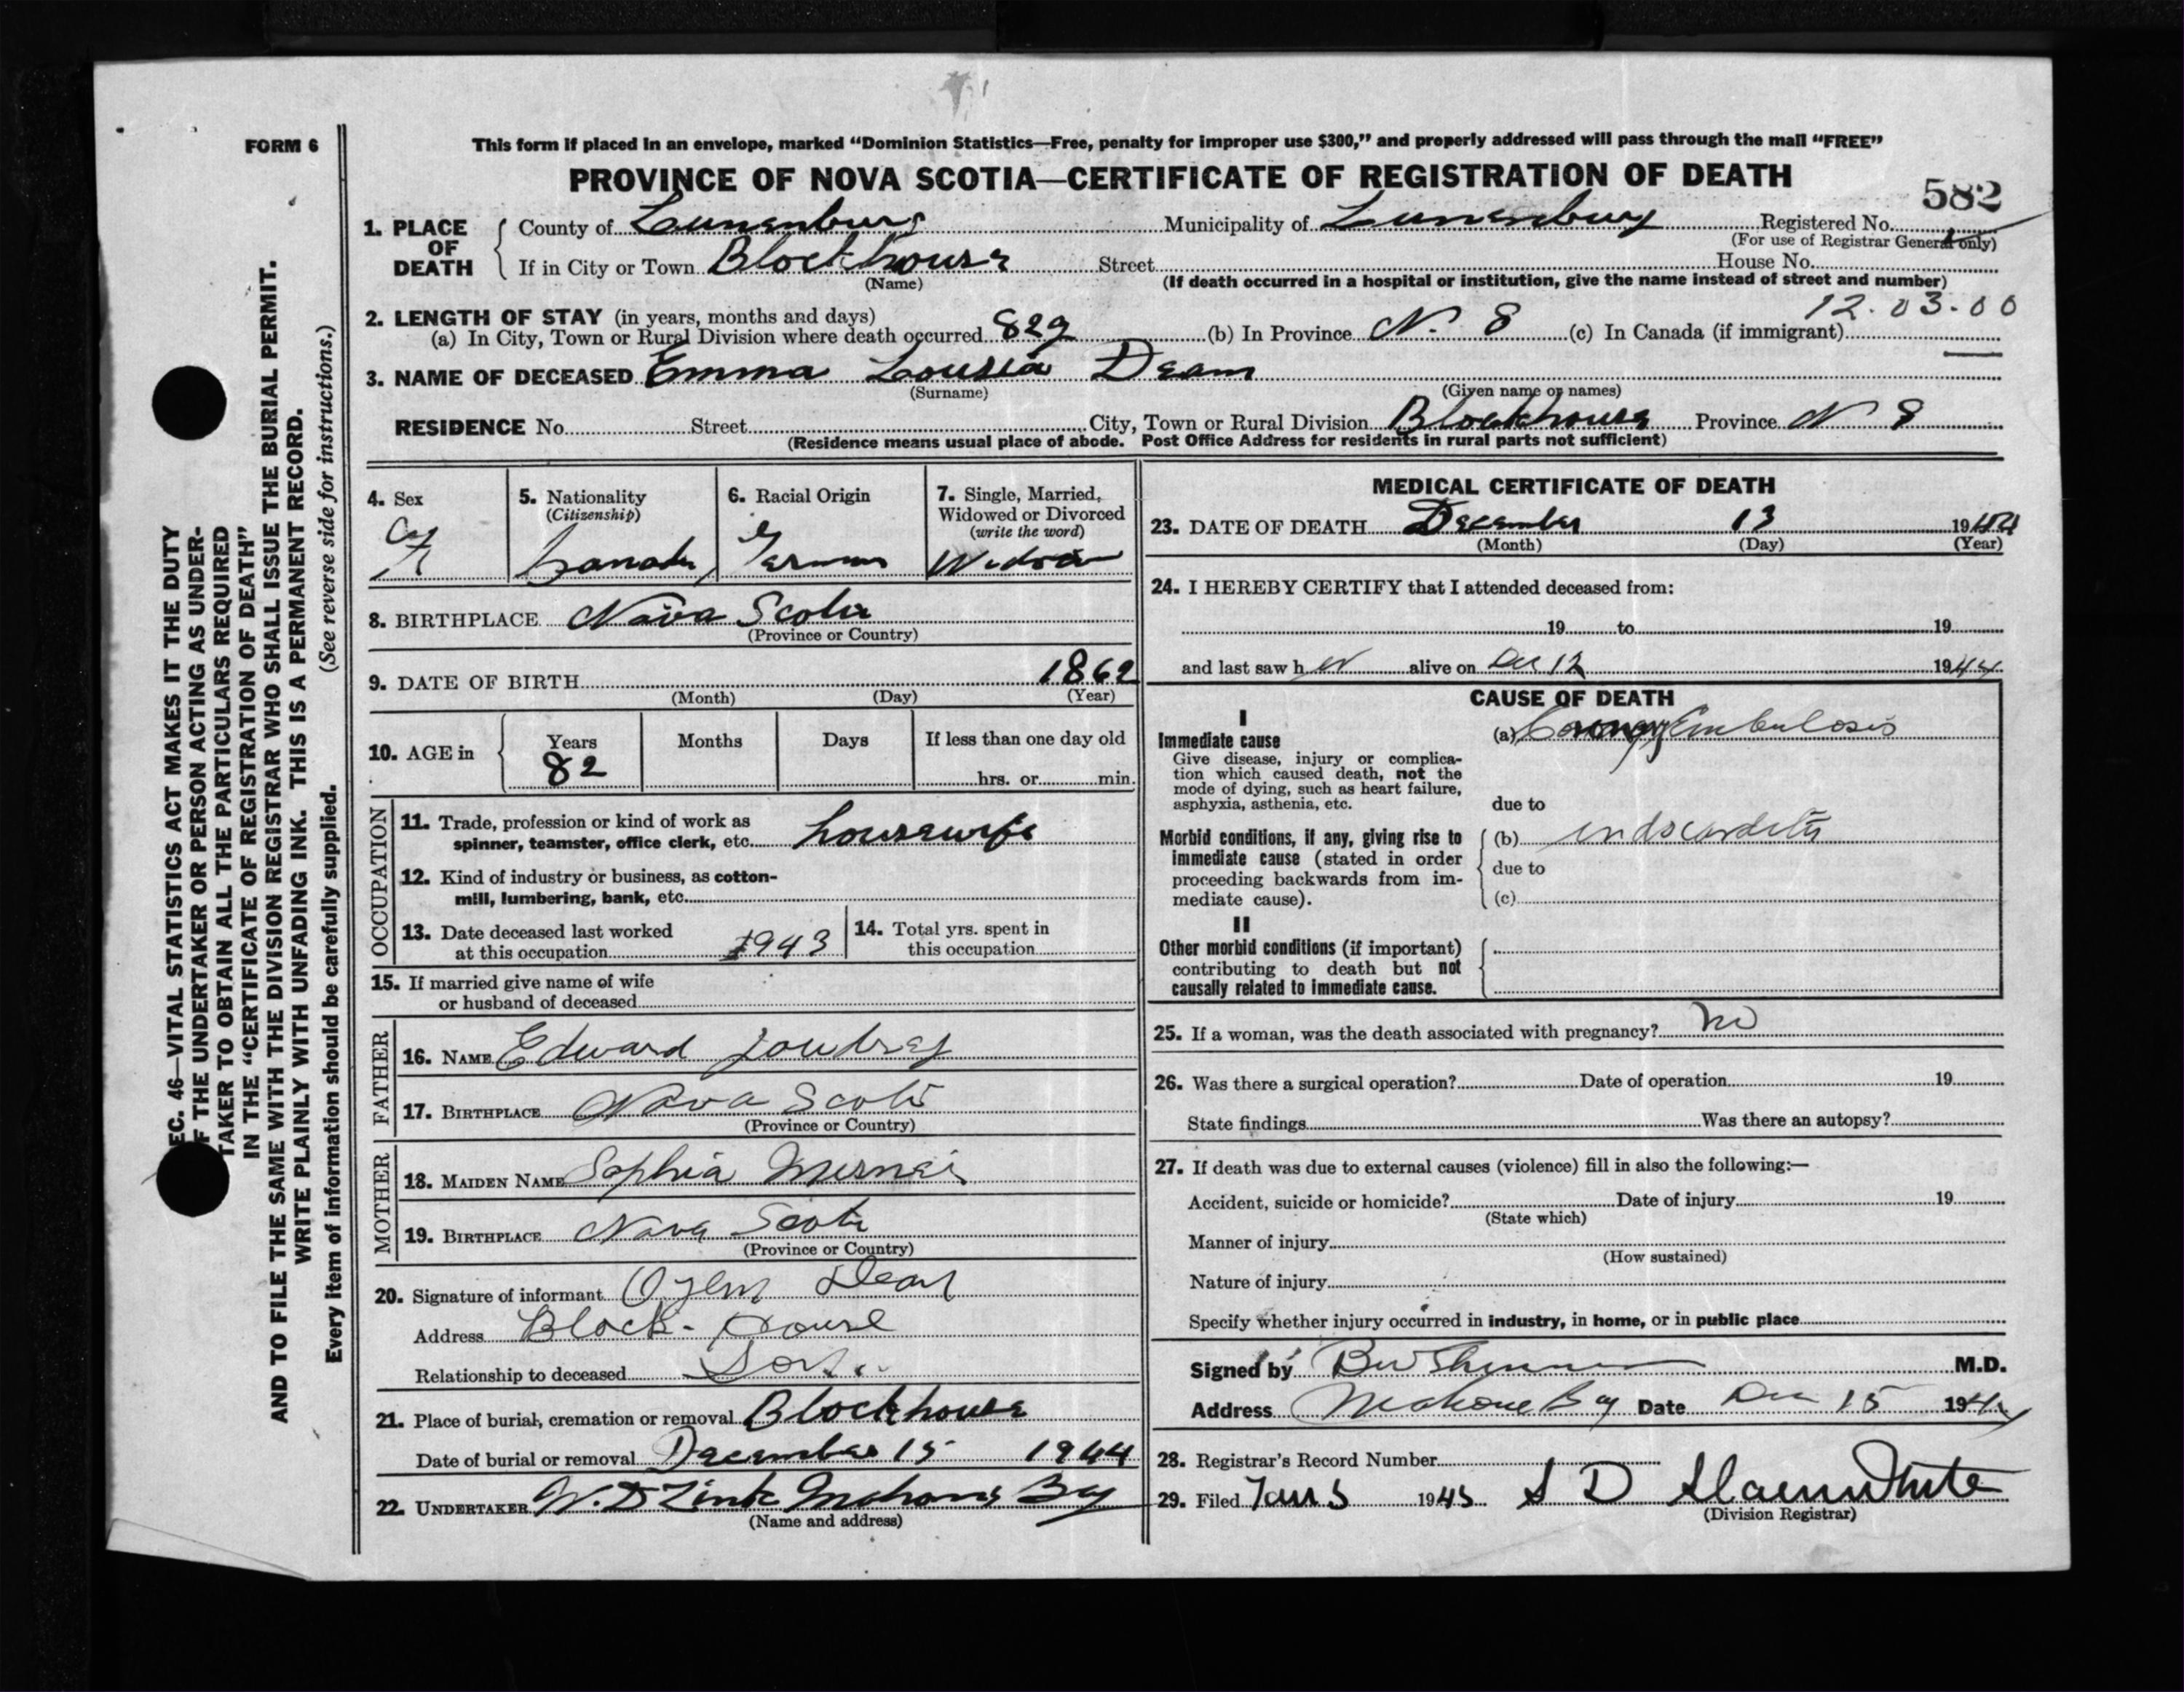 FORM 6
This form if placed in an envelope, marked “Dominion Statistics—Free, penalty for improper use $300,” and properly addressed will pass through the mail “FREE”
PROVINCE OF NOVA SCOTIA—CERTIFICATE OF REGISTRATION OF DEATH
582
1. PLACE OF DEATH County of Lunenburg Municipality of Lunenburg Registered No.
(For use of Registrar General only)
If in City or Town Blockhouse Street House No.
(Name) (If death occurred in a hospital or institution, give the name instead of street and number)
12.03.00
2. LENGTH OF STAY (in years, months and days)
(a) In City, Town or Rural Division where death occurred 82y (b) In Province N. S (c) In Canada (if immigrant) —
3. NAME OF DECEASED Emma Lousia Dean
(Surname) (Given name or names)
RESIDENCE No. Street City, Town or Rural Division Blockhouse Province N S
(Residence means usual place of abode. Post Office Address for residents in rural parts not sufficient)
4. Sex F
5. Nationality
(Citizenship)
Canada
6. Racial Origin
German
7. Single, Married,
Widowed or Divorced
(write the word)
Widow
8. BIRTHPLACE Nova Scotia
(Province or Country)
9. DATE OF BIRTH 1862
(Month) (Day) (Year)
10. AGE in Years Months Days If less than one day old
82 hrs. or min.
OCCUPATION
11. Trade, profession or kind of work as
spinner, teamster, office clerk, etc. housewife
12. Kind of industry or business, as cotton-
mill, lumbering, bank, etc.
13. Date deceased last worked
at this occupation 1943
14. Total yrs. spent in
this occupation
15. If married give name of wife
or husband of deceased
FATHER
16. NAME Edward Joudrey
17. BIRTHPLACE Nova Scotia
(Province or Country)
MOTHER
18. MAIDEN NAME Sophia
19. BIRTHPLACE Nova Scotia
(Province or Country)
20. Signature of informant Ozem Dean
Address Block-House
Relationship to deceased Son.
21. Place of burial, cremation or removal Blockhouse
Date of burial or removal December 15 1944
22. UNDERTAKER W. D Zink Mahone Bay
(Name and address)
MEDICAL CERTIFICATE OF DEATH
23. DATE OF DEATH December 13 1944
(Month) (Day) (Year)
24. I HEREBY CERTIFY that I attended deceased from:
19 to 19
and last saw h er alive on Dec 12 1944
CAUSE OF DEATH
I
Immediate cause
Give disease, injury or complica-
tion which caused death, not the
mode of dying, such as heart failure,
asphyxia, asthenia, etc.
(a) Coronary Embulosis
due to
Morbid conditions, if any, giving rise to
immediate cause (stated in order
proceeding backwards from im-
mediate cause).
(b) endocarditis
due to
(c)
II
Other morbid conditions (if important)
contributing to death but not
causally related to immediate cause.
25. If a woman, was the death associated with pregnancy? no
26. Was there a surgical operation? Date of operation 19
State findings Was there an autopsy?
27. If death was due to external causes (violence) fill in also the following:—
Accident, suicide or homicide? Date of injury 19
(State which)
Manner of injury
(How sustained)
Nature of injury
Specify whether injury occurred in industry, in home, or in public place
Signed by M.D.
Address Mahone Bay Date Dec 15 1944
28. Registrar's Record Number
29. Filed Jan 5 1945 S D Slauenwhite
(Division Registrar)
EC. 46—VITAL STATISTICS ACT MAKES IT THE DUTY
F THE UNDERTAKER OR PERSON ACTING AS UNDER-
TAKER TO OBTAIN ALL THE PARTICULARS REQUIRED
IN THE “CERTIFICATE OF REGISTRATION OF DEATH”
AND TO FILE THE SAME WITH THE DIVISION REGISTRAR WHO SHALL ISSUE THE BURIAL PERMIT.
WRITE PLAINLY WITH UNFADING INK. THIS IS A PERMANENT RECORD.
Every item of information should be carefully supplied. (See reverse side for instructions.)